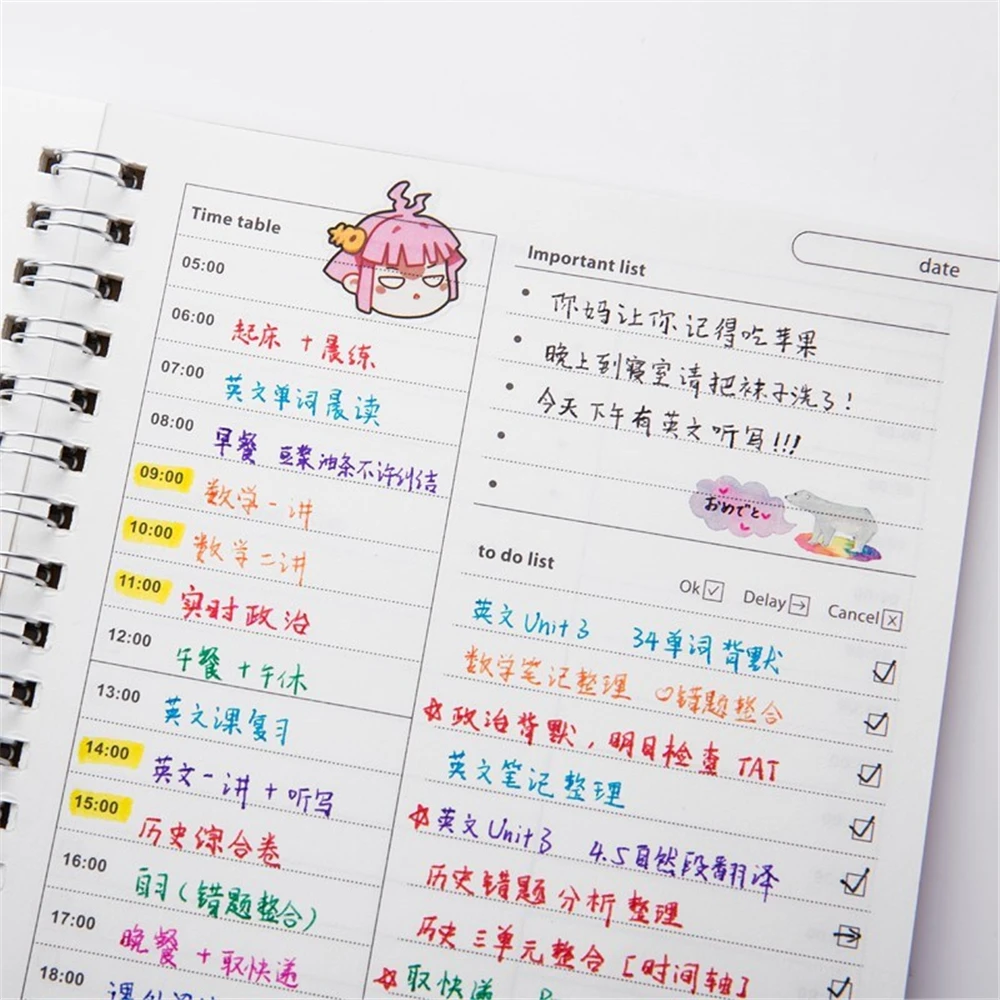 Time table
05:00
06:00 起床 + 晨练
07:00 英文单词晨读
08:00 早餐 豆浆油条不许纠结
09:00 数学一讲
10:00 数学二讲
11:00 实时政治
12:00 午餐 + 午休
13:00 英文课复习
14:00 英文一讲 + 听写
15:00 历史综合卷
16:00 自习(错题整合)
17:00 晚餐 + 取快递
18:00
Important list
date
你妈让你记得吃苹果
晚上到寝室请把袜子洗了!
今天下午有英文听写!!!
おめでと
to do list
Ok Delay Cancel
英文Unit 3 34单词背默
数学笔记整理 错题整合
政治背默,明日检查 TAT
英文笔记整理
英文Unit 3 4.5自然段翻译
历史错题分析整理
历史三单元整合[时间轴]
取快递